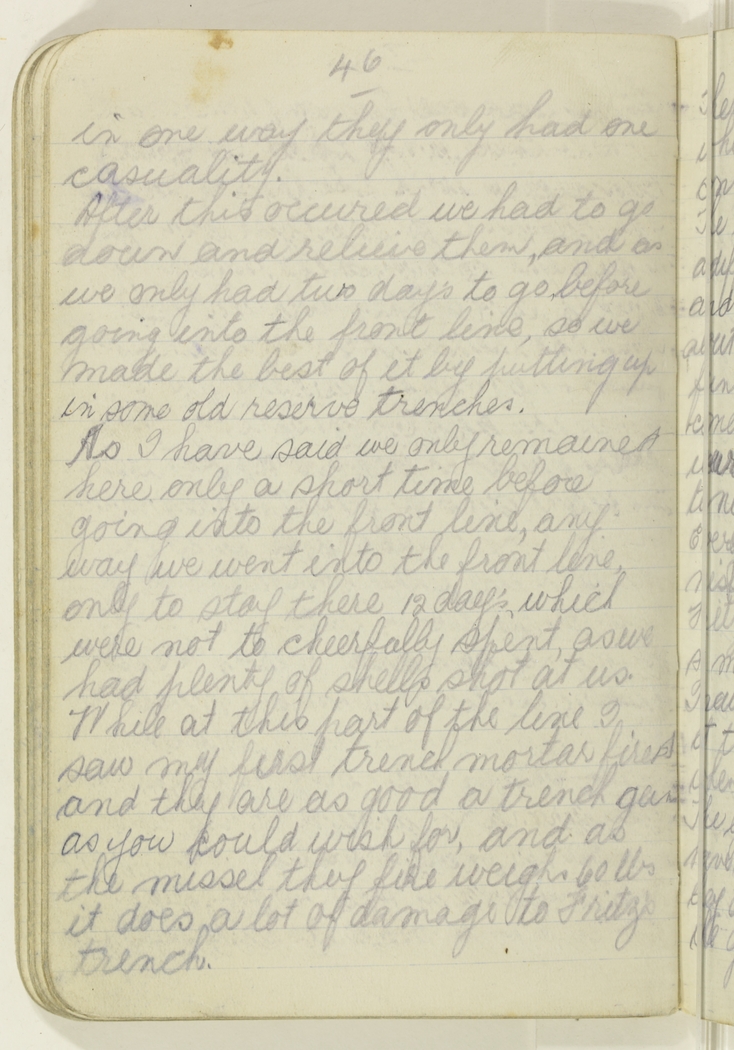 46
in one way they only had one
casuality.
After this occured we had to go
down and relieve them, and as
we only had two days to go, before
going into the front line, so we
made the best of it by putting up
in some old reserve trenches.
As I have said we only remained
here only a short time before
going into the front line, any
way we went into the front line,
only to stay there 12 day's, which
were not to cheerfully spent, as we
had plenty of shells shot at us.
While at this part of the line I
saw my first trench mortar fired
and they are as good a trench gun
as you could wish for, and as
the missel they fire weighs 60 lbs
it does a lot of damage to Fritz's
trench.